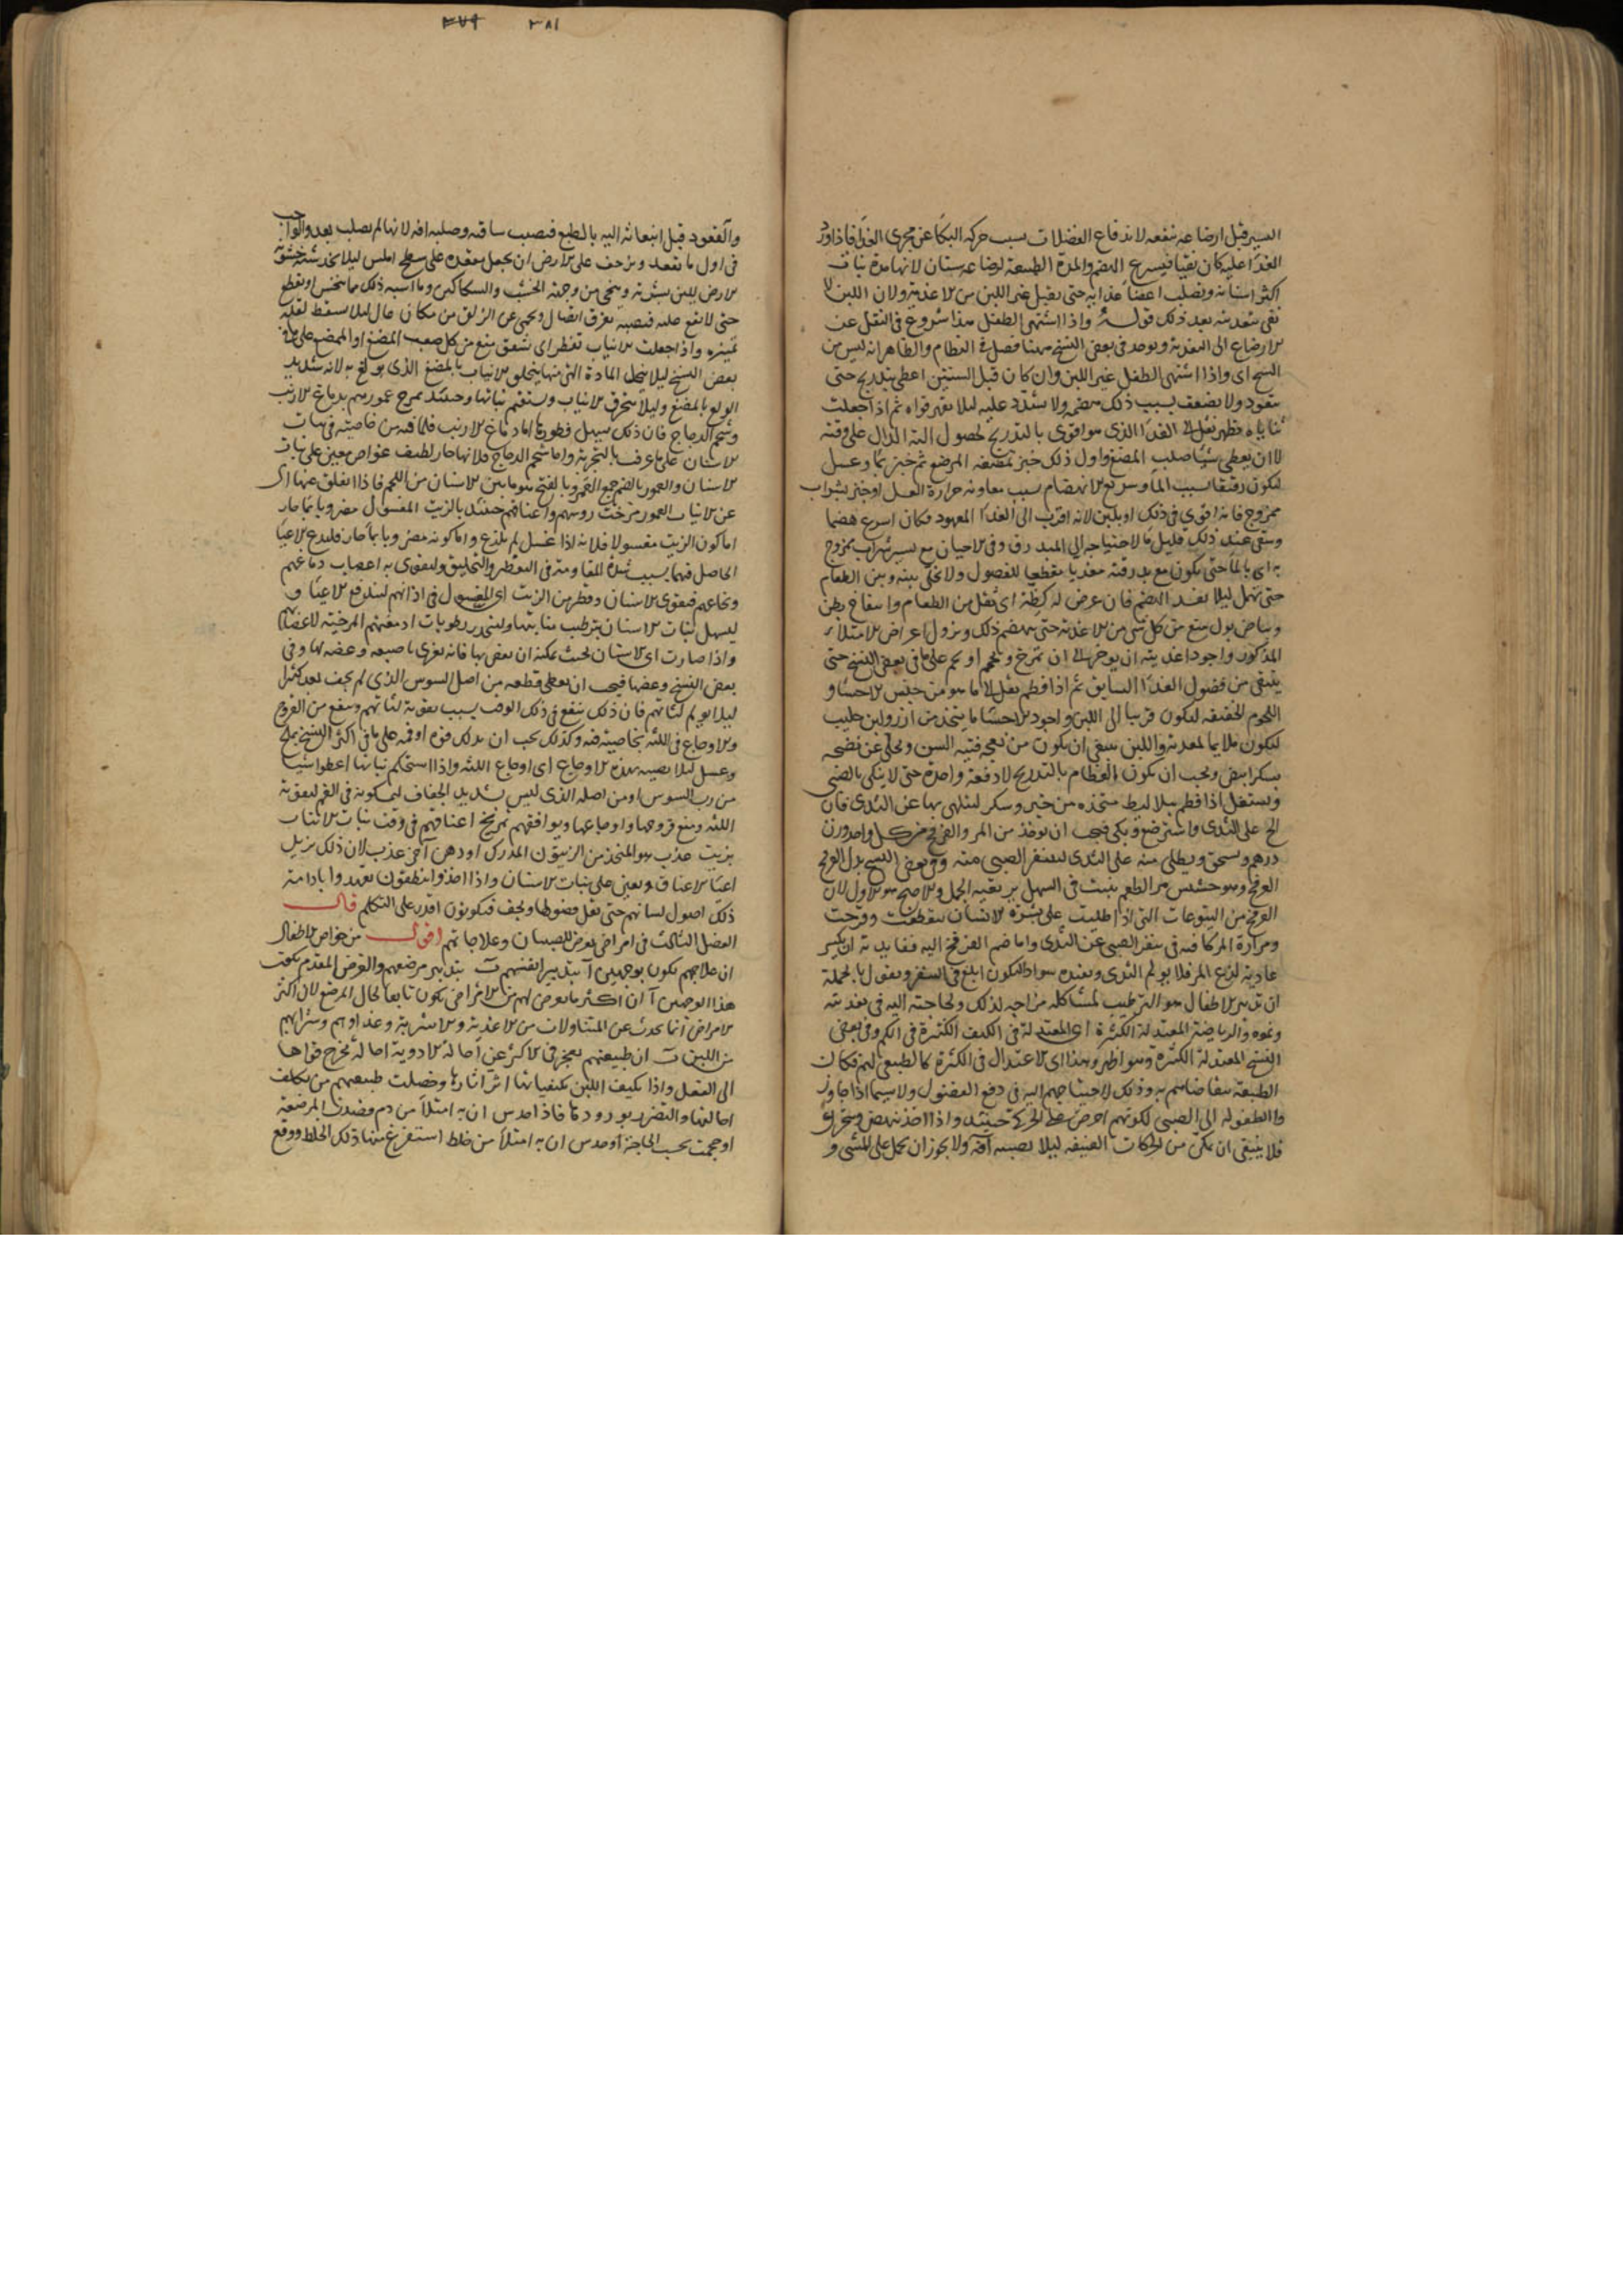 اليسير قبل ارضاعه ينفعه لاندفاع الفضلات بسبب حركة البكا عن مجرى الغذا فاذا ورد
الغذا عليه كان نقيا فيسرع الهضم والمدة الطبيعية لرضاعه سنتان لانها مدة نبات
اكثر اسنانه وتصلب اعضا غذايه حتى يقبل غير اللبن من الاغذية ولان اللبن لا
يفى بتغذيته بعد ذلك قوله واذا اشتهى الطفل هذا شروع فى النقل عن
الارضاع الى التغذية ويوجد فى بعض النسخ ههنا فصل فى الفطام والظاهر انه ليس من
النسخ اى واذا اشتهى الطفل غير اللبن وان كان قبل السنتين اعطى بتدريج حتى
يتعود ولا يضعف بسبب ذلك هضمه ولا يشدد عليه ليلا يقهر قواه ثم اذا جعلت
ثناياه تظهر نقل الى الغذا الذى هو اقوى بالتدريج لحصول الته الدال على وقته
لا ان يعطى شيا صلب المضغ واول ذلك خبز تمضغه المرضع ثم خبز بما وعسل
ليكون رقيقا بسبب الما وسريع الانهضام بسبب معاونة حرارة العسل او خبز بشراب
ممزوج فانه اقوى فى ذلك او بلبن لانه اقرب الى الغذا المعهود فكان اسرع هضما
ويسقى عند ذلك قليل ما لاحتياجه الى المبدرق وفى الاحيان مع يسير شراب ممزوج
به اى بالما حتى يكون مع بدرقته مغذيا مقطعا للفضول ولا يخلى بينه وبين الطعام
حتى يتملى ليلا يفسد الهضم فان عرض له كظة اى ثقل من الطعام وانتفاخ بطن
وبياض بول منع من كل شى من الاغذية حتى ينهضم ذلك ويزول اعراض الامتلاء
المذكور واجود اغذيته ان يوخر الى ان يمرخ ويحمم او يحم على ما فى بعض النسخ حتى
ينقى من فضول الغذا السابق ثم اذا فطم نقل الى ما هو من جنس الاحسا و
اللحوم الخفيفة ليكون قريبا الى اللبن واجود الاحسا ما يتخذ من ارز ولبن حليب
ليكون ملايما لمعدته واللبن ينبغى ان يكون من نعجة فتية السن ويحلى عن نضجه
بسكر ابيض ويجب ان يكون الفطام بالتدريج لا دفعة واحدة حتى لا ينكى بالصبى
ويشتغل اذا فطم ببلاليط متخذة من خبز وسكر ليتلهى بها عن الثدى فان
الح على الثدى واسترضع وبكى فيجب ان يوخذ من المر والفوتنج من كل واحد وزن
درهم ويسحق ويطلى منه على الثدى ليتنفر الصبى منه وفى بعض النسخ بدل الفوتنج
العرفج وهو حشيش مر الطعم ينبت فى السهل يرتعيه الجمل والاصح هو الاول لان
العرفج من اليتوعات التى اذا طليت على بشرة الانسان تنقطعت وقرحت
ومرارة المر كافية فى تنفر الصبى عن الثدى واما ضم الفوتنج اليه ففايدته ان يكسر
عادية لذع المر فلا يولم الثدى ويفيده سوادا ليكون ابلغ فى التنفر ونقول بالجملة
ان تدبير الاطفال هو الترطيب لمشاكلة مزاجه لذلك ولحاجته اليه فى تغذيته
ونموه والرياضة المعتدلة الكثيرة اى المعتدلة فى الكيف الكثيرة فى الكم وفى بعض
النسخ المعتدلة الكثرة وهو اظهر وهذا اى الاعتدال فى الكثرة كالطبيعى لهم فكان
الطبيعة تتقاضاهم به وذلك لاحتياجهم اليه فى دفع الفضول ولا سيما اذا جاوز
وا الطفولة الى الصبى لكونهم احرص على الحركة حينئذ واذا اخذ ينهض ويتحرك
فلا ينبغى ان يمكن من الحركات العنيفة ليلا يصيبه آفة ولا يجوز ان يحمل على المشى و
٣٨١ ٣٧٩
والقعود قبل انبعاثه اليه بالطبع فيصيب ساقيه وصلبه افة لانها لم يصلب بعد والواجب
فى اول ما يقعد ويزحف على الارض ان يجعل مقعده على سطح املس ليلا يخدشه خشونة
الارض للين بشرته وينحى من وجهه الخشب والسكاكين وما اشبه ذلك مما ينخس او يقطع
حتى لا يقع عليه فيصيبه تفرق اتصال ويحمى عن الزلق من مكان عال ليلا يسقط لقلة
تميزه واذا جعلت الانياب تفطر اى تشقق منع من كل صعب المضغ او الممضغ على ما فى
بعض النسخ ليلا يتحلل المادة التى منها يتخلق الانياب بالمضغ الذى يولع به لانه شديد
الولوع بالمضغ وليلا ينحرق الانياب ويستقيم نباتها وحينئذ يمرج عمورهم بدماغ الارنب
وشحم الدجاج فان ذلك يسهل فطورها اما دماغ الارنب فلما فيه من خاصية فى نبات
الاسنان على ما عرف بالتجربة واما شحم الدجاج فلانها حار لطيف غواص معين على نبات
الاسنان والعمور بالضم جمع العمر وبالفتح هو ما بين الاسنان من اللحم فاذا انفلق عنها اى
عن الانياب العمور مرخت روسهم واعناقهم حينئذ بالزيت المغسول مضروبا بما حار
اما كون الزيت مغسولا فلانه اذا غسل لم يلذع واما كونه مضروبا بما حار فليدع الاعيا
الحاصل فيهما بسبب شدة المقاومة فى التفطر والتخليق وليقوى به اعصاب دماغهم
ونخاعهم فيقوى الاسنان وقطر من الزيت اى المغسول فى اذانهم ليندفع الاعيا و
ليسهل نبات الاسنان بترطيب منابتها وليتحدر رطوبات ادمغتهم المرخية لاعضائهم
واذا صارت اى الاسنان بحيث يمكنه ان يعض بها فانه يغرى باصبعه وعضه لها وفى
بعض النسخ وعضها فيجب ان يعطى قطعة من اصل السوس الذى لم يجف بعد كثيرا
ليلا يولم لثاتهم فان ذلك ينفع فى ذلك الوقت بسبب تقوية لثاتهم وينفع من القروح
والاوجاع فى اللثة بخاصية فيه وكذلك يجب ان يدلك فوه او فمه على ما فى اكثر النسخ بملح
وعسل ليلا يصيبه هذه الاوجاع اى اوجاع اللثة واذا استحكم نباتها اعطوا شيا
من رب السوس او من اصله الذى ليس بشديد الجفاف ليمسكونه فى الفم ليقوية
اللثة ويمنع قروحها واوجاعها ويوافقهم تمريخ اعناقهم فى وقت نبات الانياب
بزيت عذب هو المتخذ من الزيتون المدرك او دهن آخر عذب لان ذلك يزيل
اعيا الاعناق ويعين على نبات الاسنان واذا اخذوا ينطقون تعهدوا بادامة
ذلك اصول لسانهم حتى يقل فضولها ويجف فيكونون اقدر على التكلم قال
الفصل الثالث فى امراض تعرض للصبيان وعلاجاتهم اقول من خواص الاطفال
ان علاجهم يكون بوجهين آ بتدبير انفسهم ب بتدبير مرضعهم والغرض المقدم
هذا الوجهين آ ان اكثر ما يعرض لهم من الامراض يكون تابعا لحال المرضع لان اكثر
الامراض انما يحدث عن المتناولات من الاغذية والاشربة وغذاوهم وشرابهم
من اللبن ب ان طبيعتهم يعجز فى الاكثر عن احالة الادوية احالة يخرج قواها
الى الفعل واذا تكيف اللبن بكيفياتها اثر اثارها وخصلت طبيعتهم من تكلف
احالتها والتضرر بورودها فاذا حدس ان به امتلا من دم فصدت المرضعة
او حجمت بحسب الحاجة او حدس ان به امتلا من خلط استفرغ منها ذلك الخلط ووقع